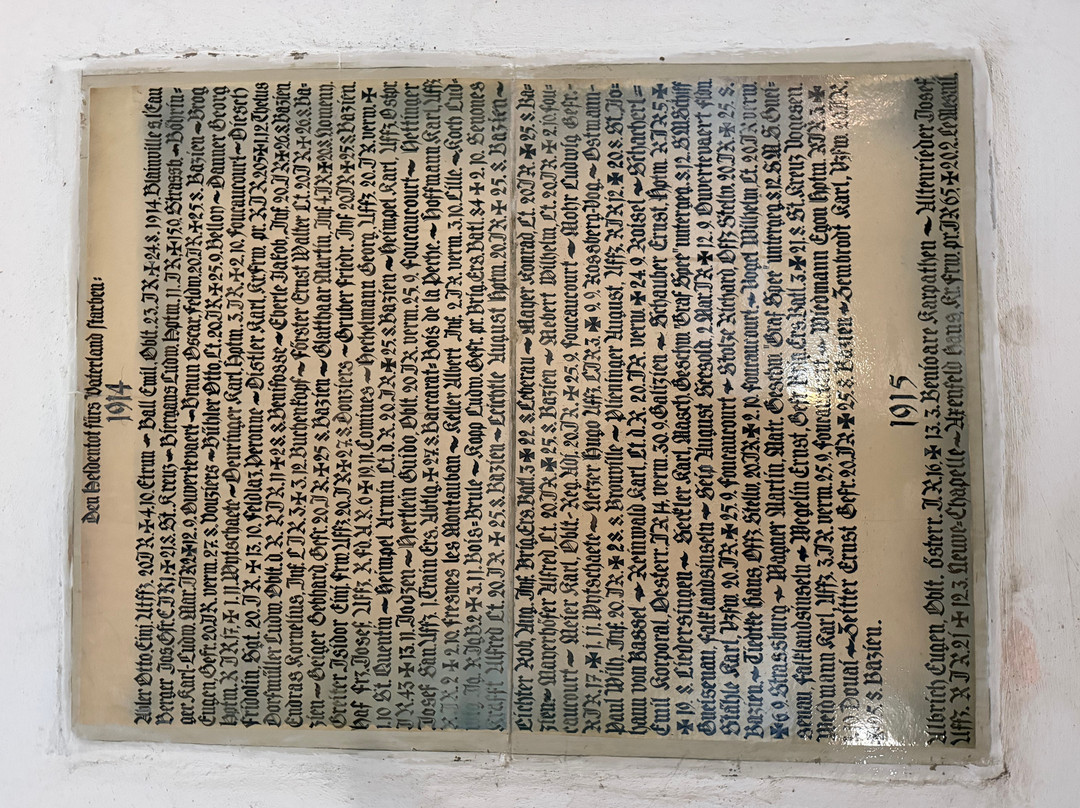 Den Heldentod fürs Vaterland starben:
1914
Adler Otto Einj. Uffz. 20.J.R. ✠ 4.10. Ervin ~ Ball Emil, Oblt. 23.J.R. ✠ 24.8.1914 Blainville a/Eau
Berger Jos. Gfr. E.J.R.1 ✠ 21.8. St. Kreuz ~ Bergaus Ludw. Hptm. 11.J.R. ✠ 15.9. Strassb. ~ Böhrin-
ger Karl-Ludw. Mar.J.R.2 ✠ 12.9. Owertewaert ~ Braun Oscar, Feldw. 20.J.R. ✠ 25.8. Bazien ~ Brög
Eugen, Gefr. 20.J.R. verm. 27.8. Vouziers ~ Bühler Otto, Lt. 20.J.R. ✠ 25.9. Belloy ~ Danner Georg
Hptm. R.J.R.17. ✠ 1.11. Wytschaete ~ Deuringer Karl, Hptm. 3.J.R. ✠ 2.10. Foucaucourt ~ Diesch
Fridolin, Sgt. 20.J.R. ✠ 13.10. Feldlaz. Peronne ~ Distler Karl, Kr.Frw. pr. R.J.R.205 ✠ 1.12. Thelus
Dorfmüller Ludw. Oblt. d. R. R.J.R.11 ✠ 28.8. Benifosse ~ Eberle Jakob, Inf. 20.J.R. ✠ 26.8. Bazien
Endras Kornelius, Inf. L.J.R.3 ✠ 3.12. Buchenkopf ~ Förster Ernst Walter Lt. 20.J.R. ✠ 26.8. Ba-
zien ~ Geiger Gebhard Gefr. 20.J.R. ✠ 25.8. Bazien ~ Glatthaar Martin, Inf. 4.J.R. ✠ 20.8. Nomeny.
Greiter Isidor Einj. Frw. Uffz. 20.J.R. ✠ 27.8. Donziers ~ Gruber Friedr. Inf. 20.J.R. ✠ 25.8. Bazien.
Haf Frz. Josef Uffz. R.Fd.A.R.6 ✠ 19.11. Comines ~ Hechelmann Georg, Uffz. 20.J.R. verm. ✠
1.10. St. Quentin ~ Heimpel Armin, Lt. d. R. 20.J.R. ✠ 25.8. Bazien ~ Heimpel Karl, Uffz. Östpr.
J.R.43 ✠ 13.11. Iodzen ~ Hertlein Guido Oblt. 20.J.R. verm. 25.9. Foucaucourt ~ Heffinger
Josef San. Uffz. 1. Train Ers. Abtlg. ✠ 9.7.8. Baccarat-Bois de la Peche ~ Hoffmann Karl, Uffz.
R.J.R.2 ✠ 2.10. Fresnes les Montauban ~ Keller Albert Inf. 2.J.R. verm. 3.10. Lille ~ Koch Lud-
wig, Jg. R.Jg.B.2 ✠ 3.11. Bois-Brule ~ Kopp Ludw. Gefr. pr. Brig. Ers. Batl. 84 ✠ 2.10. Sehones
Kreis Alfred Lt. 20.J.R. ✠ 25.8. Bazien ~ Lechtle August Hptm. 20.J.R. ✠ 25.8. Bazien ~
Eicher Rob. Aug. Inf. Brig. Ers. Batl. 3 ✠ 22.8. Leberau ~ Mager Konrad Lt. 20.J.R. ✠ 25.8. Ba-
zien ~ Mayerhöfer Alfred Lt. 20.J.R. ✠ 25.8. Bazien ~ Mebert Wilhelm Lt. 20.J.R. ✠ 2.10. Fou-
caucourt ~ Meier Karl, Oblt.-Reg. Adj. 20.J.R. ✠ 25.9. Foucaucourt ~ Mohr Ludwig, Gefr.
R.J.R.17. ✠ 1.11. Wytschaete ~ Metzer Hugo Uffz. L.J.R.3. ✠ 9.9. Rossberg-Vog. ~ Ostmann-
Paul Wilh. Inf. 20.J.R. ✠ 28.8. Bronville ~ Plieninger August, Uffz. R.J.R.12 ✠ 20.8. St. Jo-
hann von Bassel ~ Reinwald Karl, Lt. d. R. 20.J.R. verm ✠ 24.9. Roisel ~ Schächerl
Emil Korporal, Oesterr. J.R.14. verm. 30.9. Galizien ~ Schauber Ernst, Hptm. R.J.R.5 ✠
✠ 19.8. Liedersingen ~ Seckler Karl, Masch. Geschw. "Graf Spee" unterweg. 8.12. S.M. Schiff
Gneisenau, Falklandsinseln ~ Seitz August Seesold. 2. Mar.J.R. ✠ 12.9. Owertewaert Flan.
Stähle Karl, Vzfw. 20.J.R. ✠ 25.9. Foucaucourt ~ Stolze Richard Off. Stello. 20.J.R. ✠ 25.8.
Bazien. ~ Tiedtke Hans, Off. Stello. 20.J.R. ✠ 2.10. Foucaucourt ~ Vogel Wilhelm, Lt. 20.J.R. verm.
✠ 6.9. Strassburg ~ Wagner Martin, Matr. Geschw. Graf Spee untergeg. 8.12. S.M.S. Gnei-
senau, Falklandsinseln ~ Wegelin Ernst, Gefr. Brig. Ers. Batl. 3. ✠ 21.8. St. Kreuz Vogesen.
Weidmann Karl, Uffz. 3.J.R. verm. 25.9. Foucaucourt ~ Wiedmann Egon Hptm. R.J.R.3. ✠
Douai ~ Zeitter Ernst Gefr. 20.J.R. ✠ 25.8. Bazien. ~ Zumbrodt Karl, Vzfw.
✠ 25.8. Bazien.
1915
Albrich Eugen, Oblt. österr. J.R.16 ✠ 13.3. Beneoare Karpathen ~ Altenrieder Josef
Uffz. R.J.R.21 ✠ 12.3. Neuve-Chapelle ~ Arenfeld Hans, Kr. Frw. pr. J.R.65 ✠ 20.2. Le Mesnil.